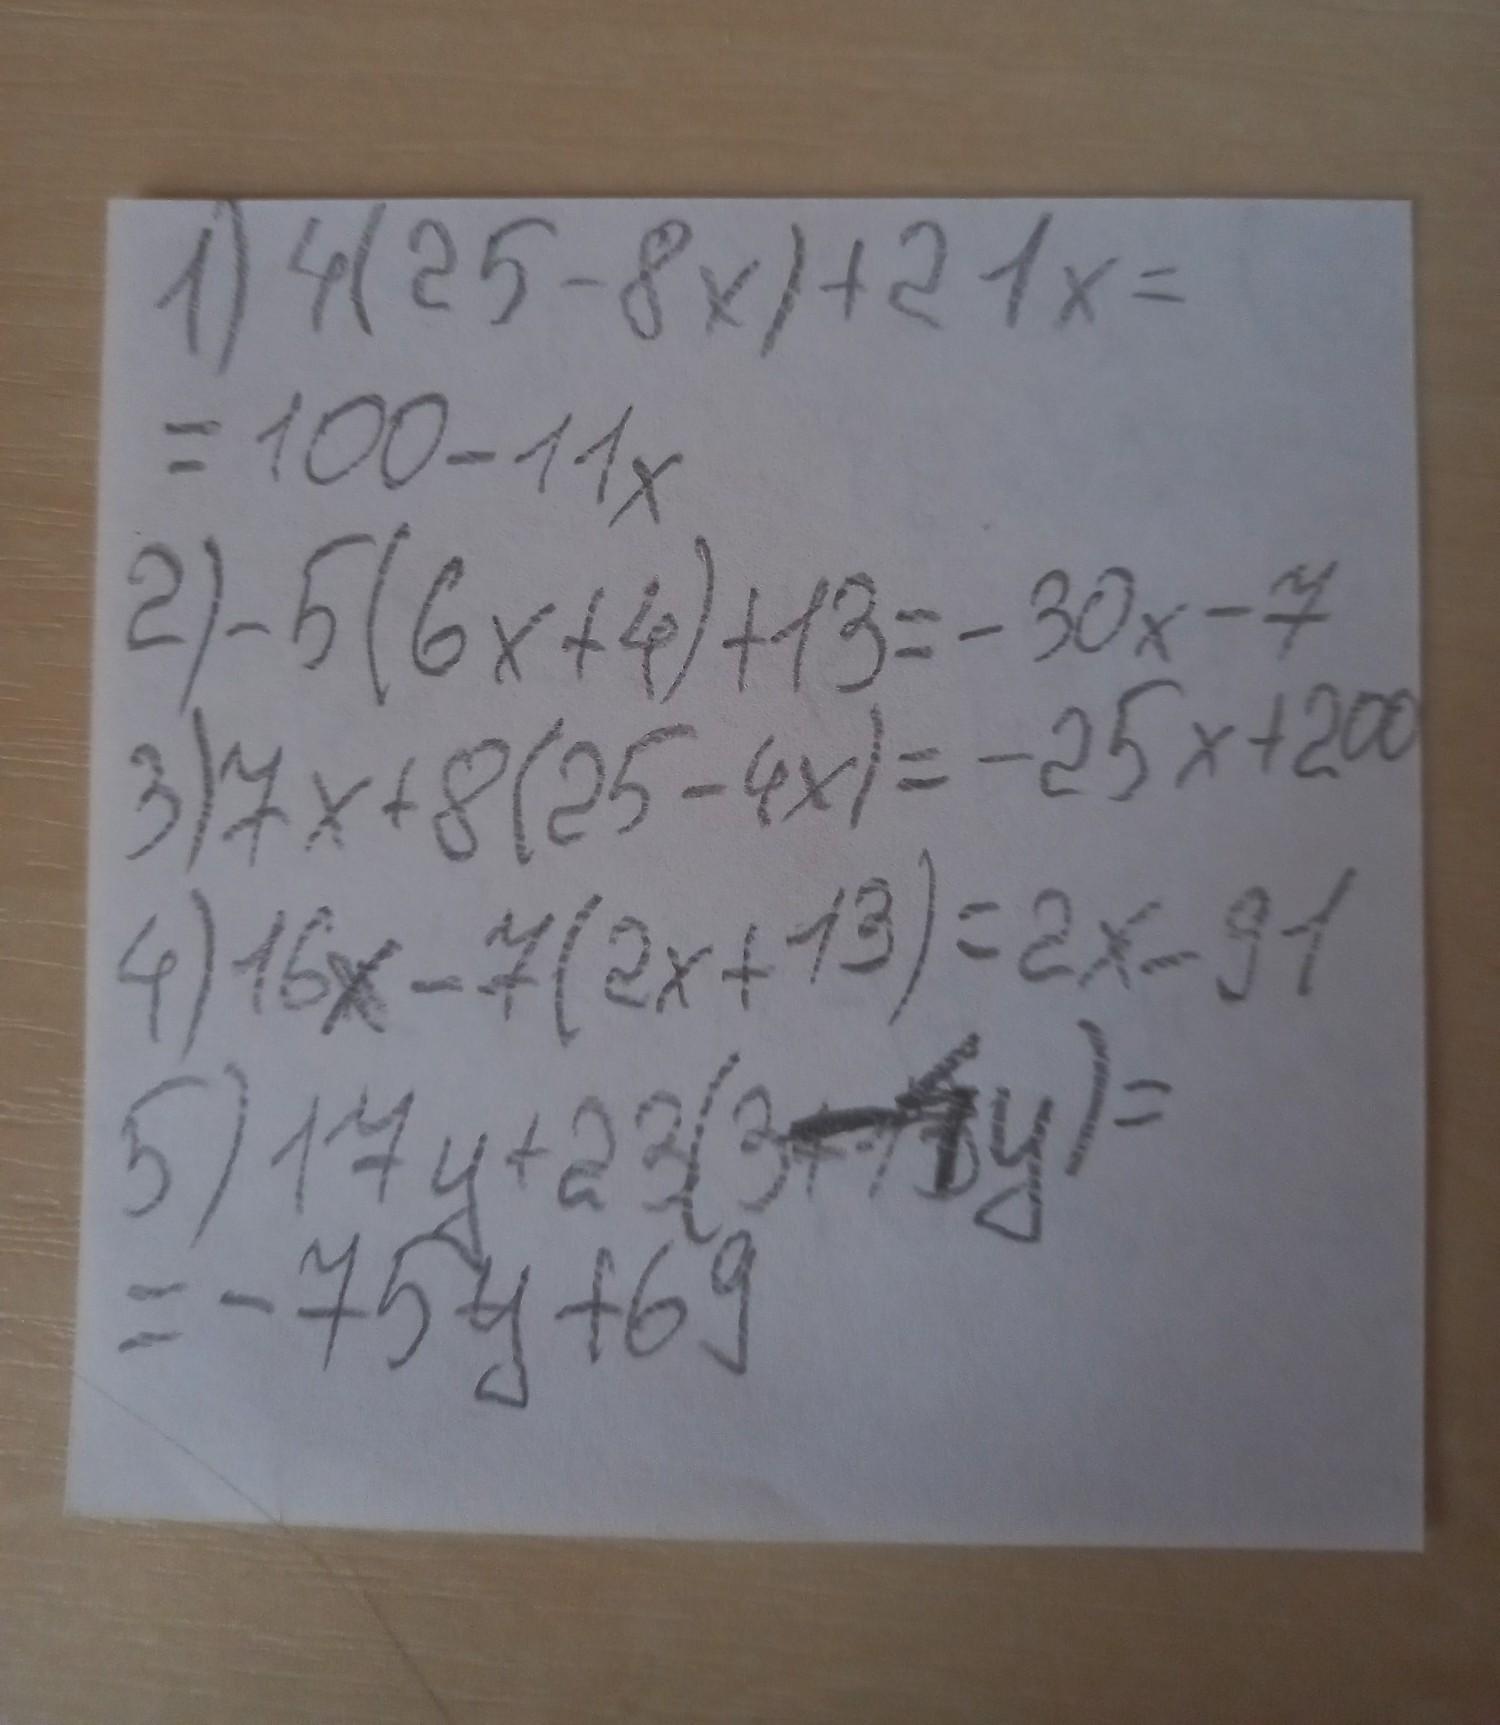 1) 4(25-8x)+21x=
=100-11x
2) -5(6x+4)+13=-30x-7
3) 7x+8(25-4x)=-25x+200
4) 16x-7(2x+13)=2x-91
5) 17y+23(3-4y)=
=-75y+69